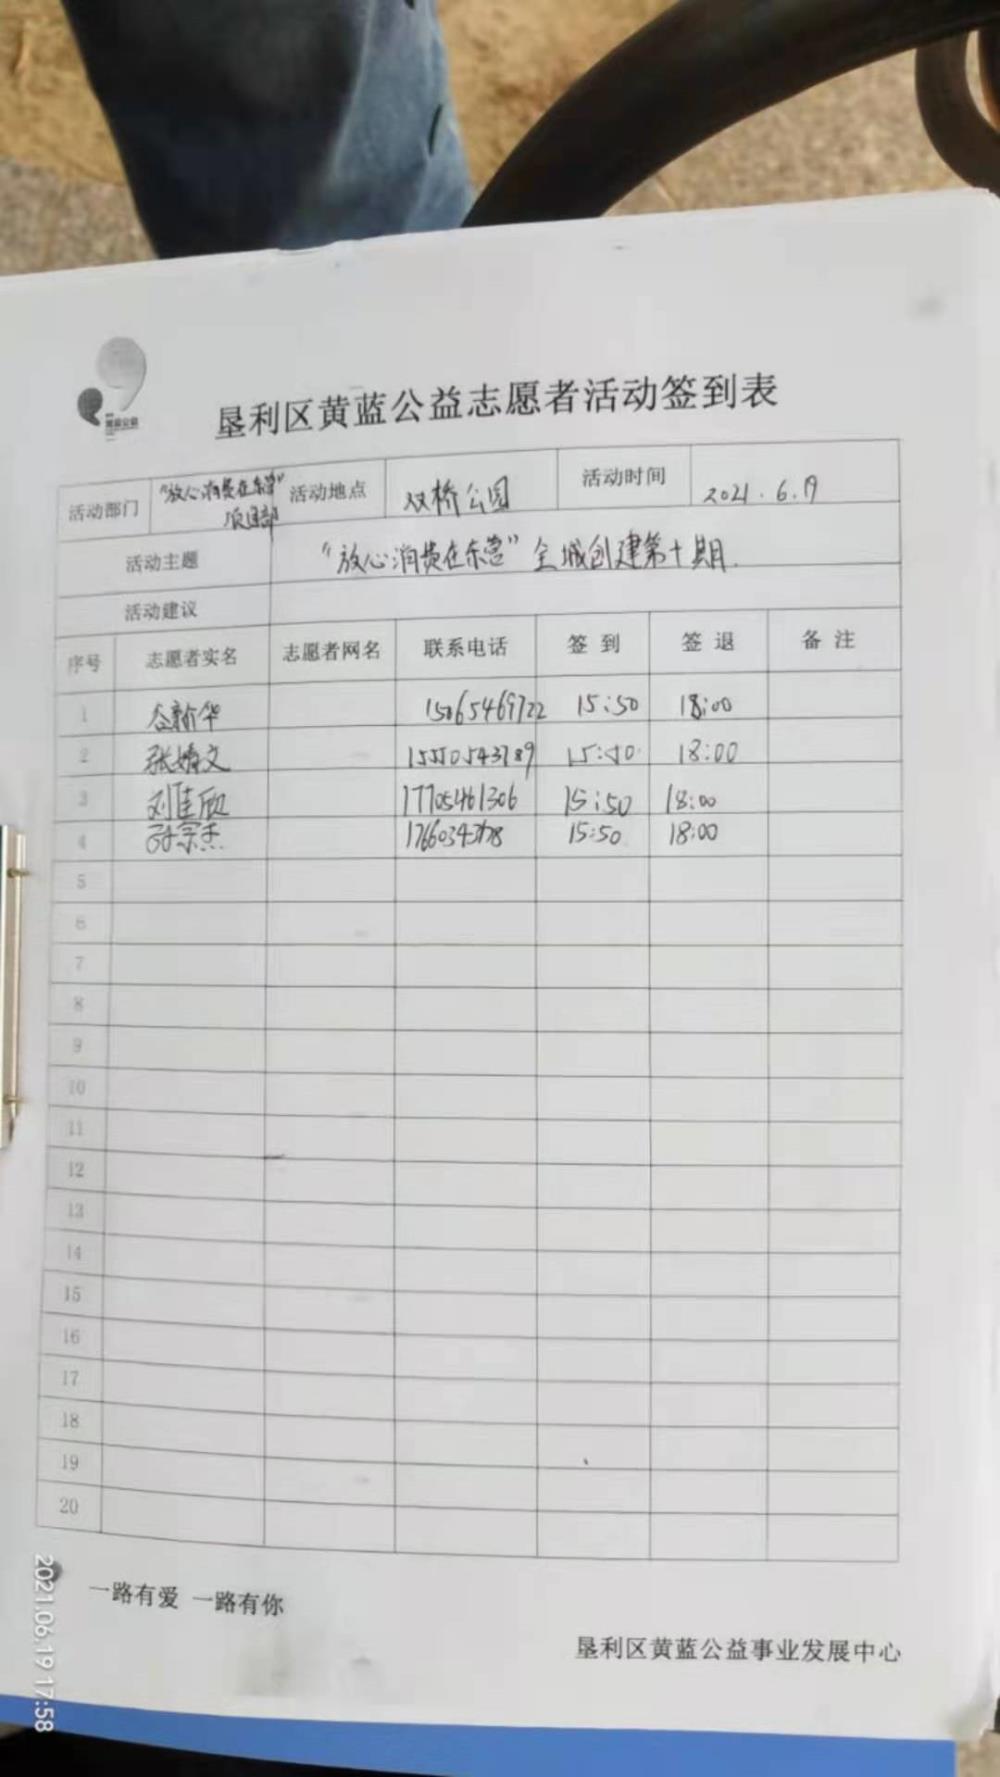 黄蓝公益
垦利区黄蓝公益志愿者活动签到表
活动部门 "放心消费在东营"项目部 活动地点 双桥公园 活动时间 2021.6.19
活动主题 "放心消费在东营"全城创建第十期.
活动建议
序号 志愿者实名 志愿者网名 联系电话 签到 签退 备注
1 谷新华 15065469722 15:50 18:00
2 张婧文 15550543789 15:50 18:00
3 刘佳欣 17705461306 15:50 18:00
4 孙宗杰 15:50 18:00
5
6
7
8
9
10
11
12
13
14
15
16
17
18
19
20
一路有爱 一路有你
垦利区黄蓝公益事业发展中心
2021.06.19 17:58